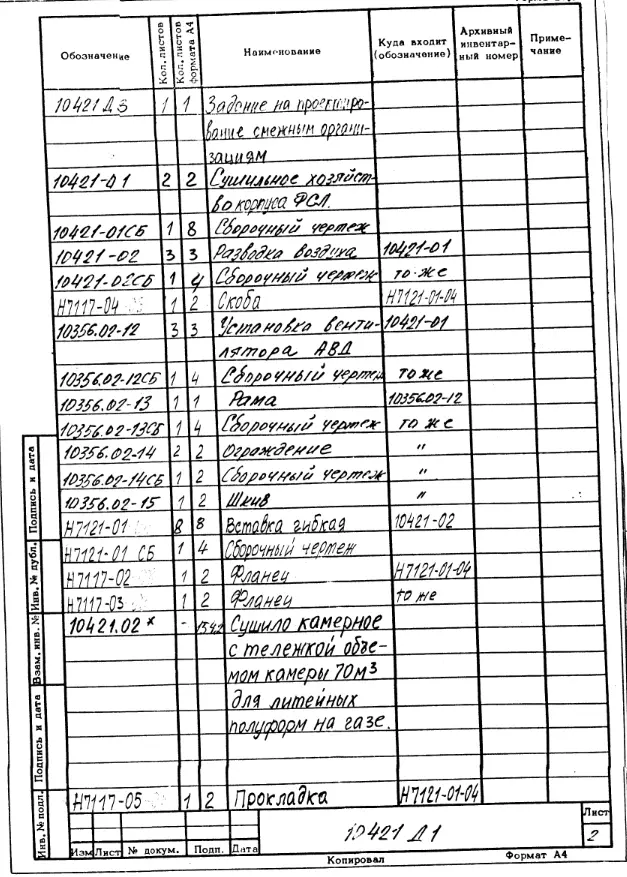 Обозначение Кол. листов Кол. листов формата А4 Наименование Куда входит (обозначение) Архивный инвентарный номер Примечание
10421 Д3 1 1 Задание на проектиро-
вание смежным органи-
зациям
10421-01 2 2 Сушильное хозяйст-
во корпуса ФСЛ.
10421-01СБ 1 8 Сборочный чертеж
10421-02 3 3 Разводка воздуха 10421-01
10421-02СБ 1 4 Сборочный чертеж то же
Н7117-04 1 2 Скоба Н7121-01-04
10356.02-12 3 3 Установка венти- 10421-01
лятора АВД
10356.02-12СБ 1 4 Сборочный чертеж то же
10356.02-13 1 1 Рама 10356.02-12
10356.02-13СБ 1 4 Сборочный чертеж то же
10356.02-14 2 2 Ограждение "
10356.02-14СБ 1 2 Сборочный чертеж "
10356.02-15 1 2 Шкив "
Н7121-01 8 8 Вставка гибкая 10421-02
Н7121-01 СБ 1 4 Сборочный чертеж
Н7117-02 1 2 Фланец Н7121-01-04
Н7117-03 1 2 Фланец то же
10421.02* - Сушило камерное
с тележкой объе-
мом камеры 70м³
для литейных
полуформ на газе.
Н7117-05 1 2 Прокладка Н7121-01-04
Инв.№ подл. Подпись и дата Взам. инв.№ Инв.№ дубл. Подпись и дата
Изм Лист № докум. Подп. Дата
10421 Д1
Лист
2
Копировал Формат А4